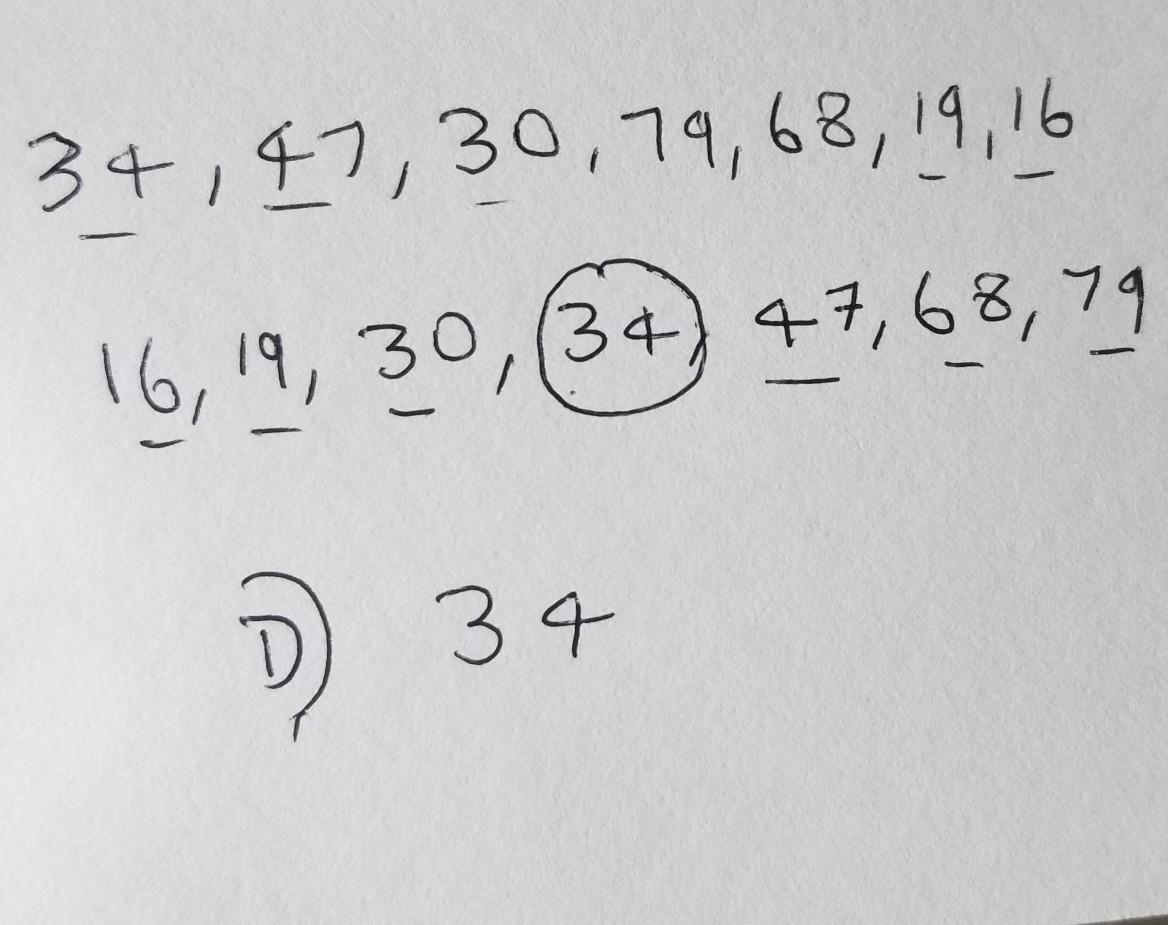 34, 47, 30, 79, 68, 19, 16
16, 19, 30, 34, 47, 68, 79
D) 34